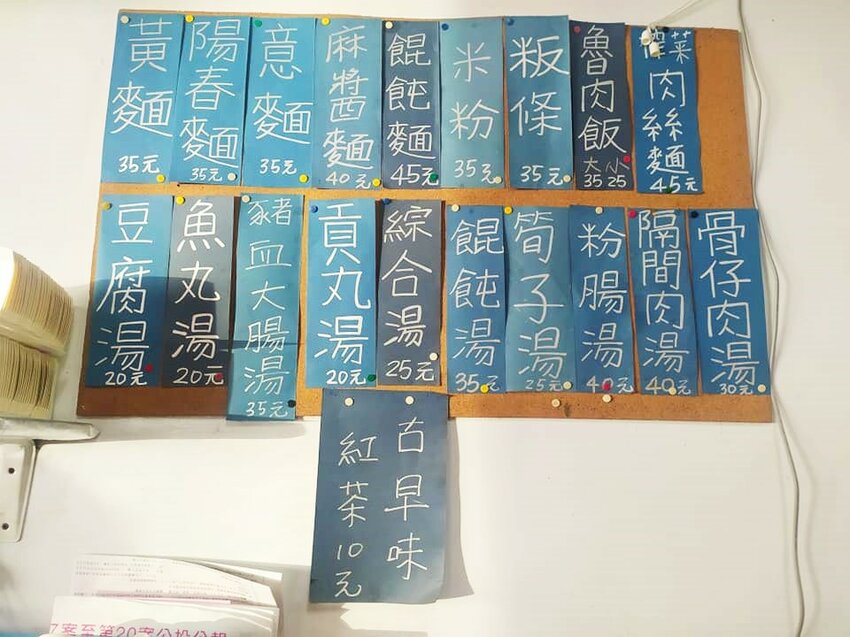 黃麵
35元
陽春麵
35元
意麵
35元
麻醬麵
40元
餛飩麵
45元
米粉
35元
粄條
35元
魯肉飯
大 小
35 25
菜肉絲麵
45元
豆腐湯
20元
魚丸湯
20元
豬血大腸湯
35元
貢丸湯
20元
綜合湯
25元
餛飩湯
35元
筍子湯
25元
粉腸湯
40元
隔間肉湯
40元
骨仔肉湯
30元
古早味
紅茶10元